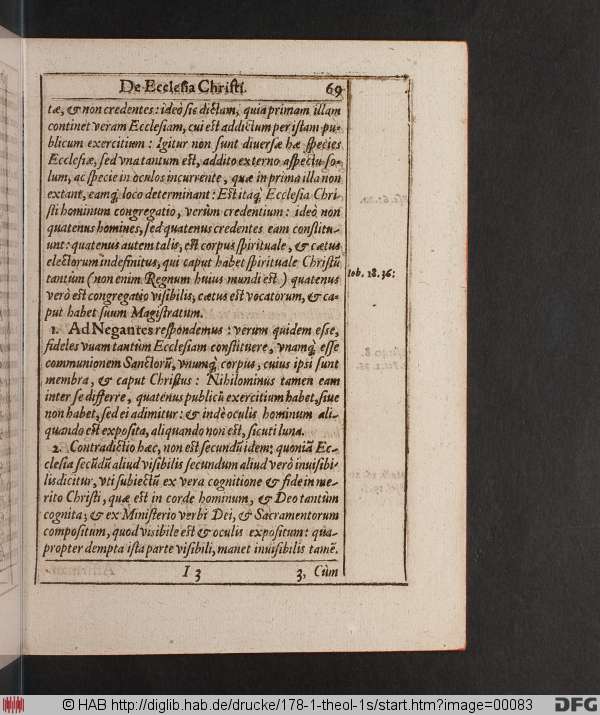 De Ecclesia Christi. 69
tæ, & non credentes: ideò sic dictam, quia primam illam
continet veram Ecclesiam, cui est addictum per istam pu-
blicum exercitium: Igitur non sunt diversæ hæ species
Ecclesiæ, sed vna tantum est, addito externo aspectu so-
lum, ac specie in oculos incurrente, quæ in prima illa non
extant, eamq́ loco determinant: Est itaq́ Ecclesia Chri-
sti hominum congregatio, verùm credentium: ideò non
quatenus homines, sed quatenus credentes eam constitu-
unt: quatenus autem talis, est corpus spirituale, & cætus
electorum indefinitus, qui caput habet spirituale Christū
tantùm (non enim Regnum huius mundi est) quatenus
verò est congregatio visibilis, cætus est vocatorum, & ca-
put habet suum Magistratum.
Ioh. 18. 36:
1. Ad Negantes respondemus: verum quidem esse,
fideles vnam tantùm Ecclesiam constituere, vnamq́ esse
communionem Sanctorū, vnumq́ corpus, cuius ipsi sunt
membra, & caput Christus: Nihilominus tamen eam
inter se differre, quatenus publicū exercitium habet, siue
non habet, sed ei adimitur: & indè oculis hominum ali-
quando est exposita, aliquando non est, sicuti luna.
2. Contradictio hæc, non est secundū idem: quoniā Ec-
clesia secūdū aliud visibilis secundum aliud verò invisibi-
lis dicitur, vti subiectū ex vera cognitione & fide in me-
rito Christi, quæ est in corde hominum, & Deo tantùm
cognita; & ex Ministerio verbi Dei, & Sacramentorum
compositum, quod visibile est & oculis expositum: qua-
propter dempta ista parte visibili, manet invisibilis tamē.
I 3 3, Cùm
© HAB http://diglib.hab.de/drucke/178-1-theol-1s/start.htm?image=00083
DFG